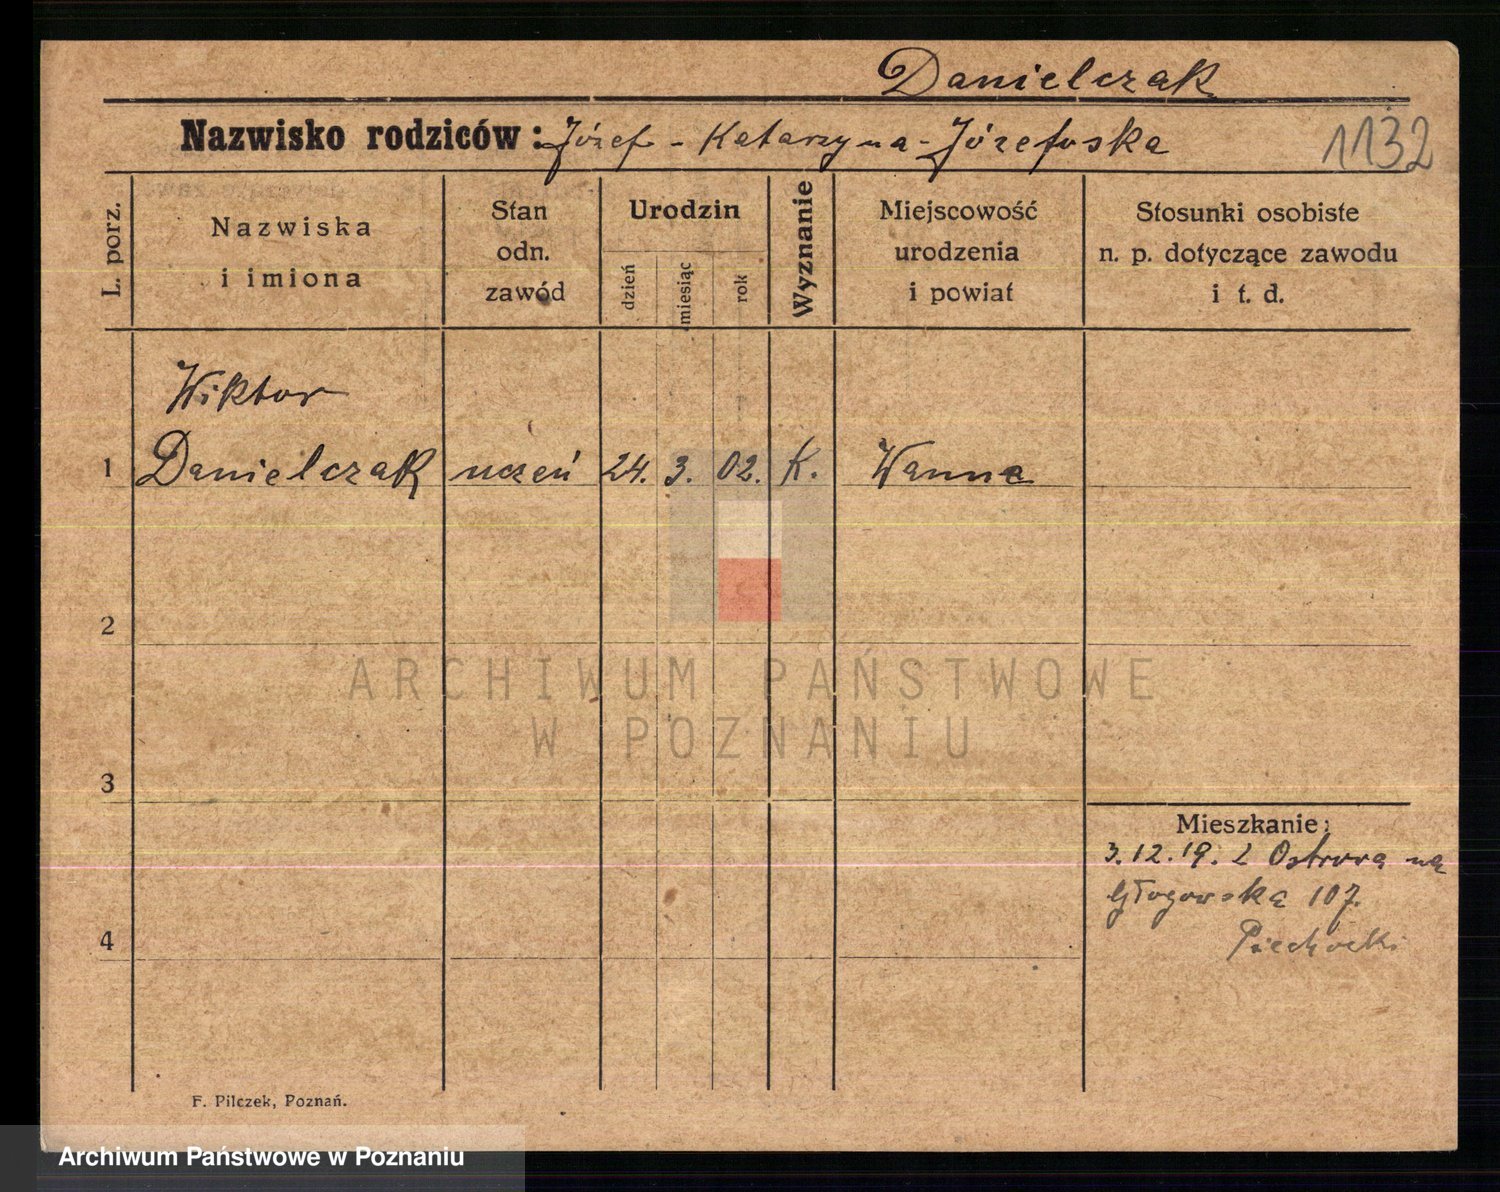 Danielczak
Nazwisko rodziców: Józef - Katarzyna - Józefoska
1132
L. porz.
Nazwiska
i imiona
Stan
odn.
zawód
Urodzin
dzień
miesiąc
rok
Wyznanie
Miejscowość
urodzenia
i powiat
Stosunki osobiste
n. p. dotyczące zawodu
i t. d.
Wiktor
1 Danielczak uczeń 24. 3. 02. K. Wanne
2
ARCHIWUM PAŃSTWOWE
W POZNANIU
3
Mieszkanie:
3.12.19. Z Ostrowa na
Głogowska 107.
Piechocki
4
F. Pilczek, Poznań.
Archiwum Państwowe w Poznaniu